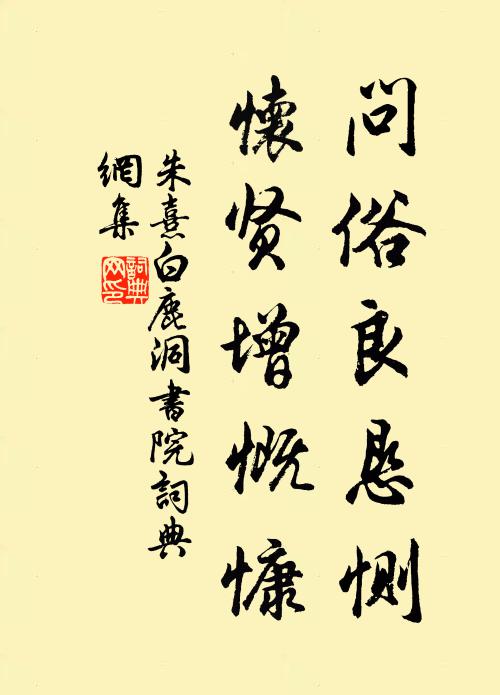 问俗良恳恻
懷贤增慨慷
朱熹白鹿洞書院詞典
網集
詞典
网印